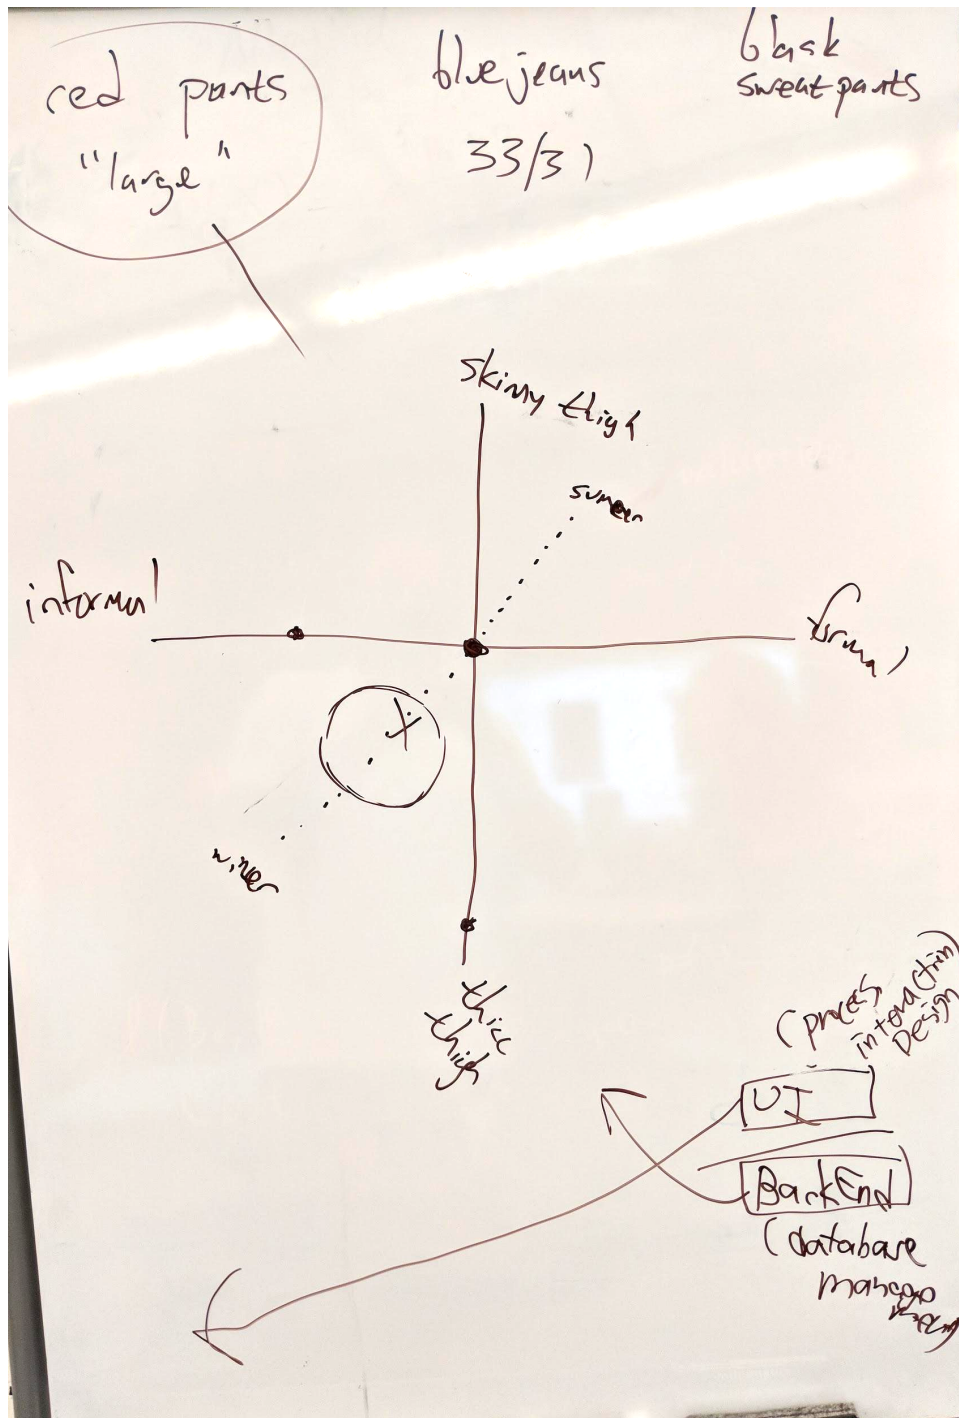 red pants
"large"
blue jeans
33/31
black
sweatpants
skinny thigh
summer
informal
formal
X
winter
thicc
thigh
(process,
interaction)
Design
UI
BackEnd
(database